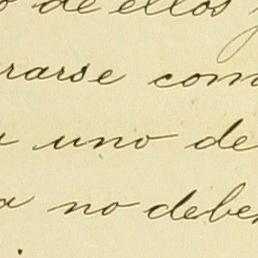 o de ellos y
rarse com
a uno de
a no deben